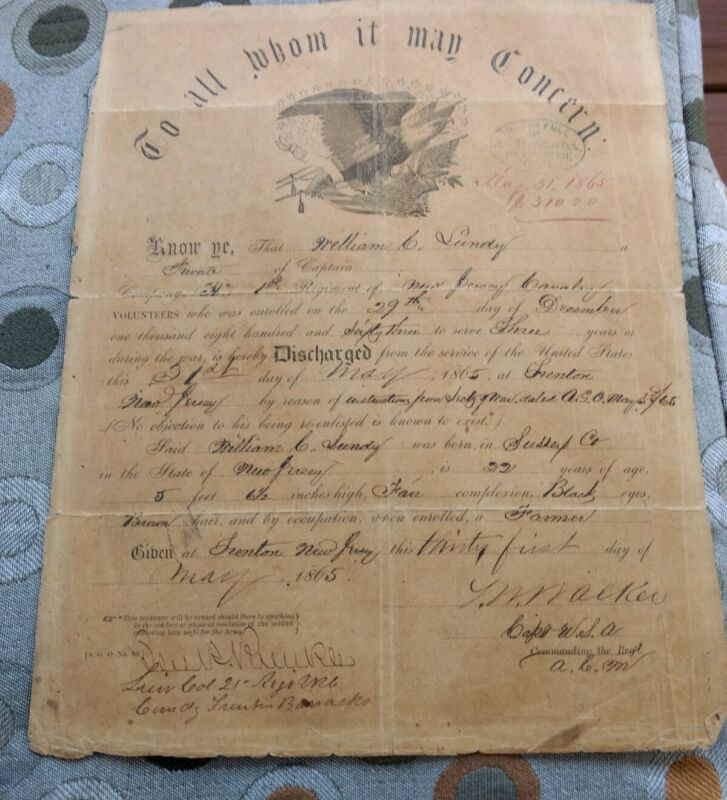 To all whom it may Concern:
May 31, 1865
$310.20
Know ye, That William C. Lundy a
Private of Captain
Company, (H,) 1st Regiment of New Jersey Cavalry
VOLUNTEERS who was enrolled on the 29th day of December
one thousand eight hundred and Sixty three to serve Three years or
during the war, is hereby Discharged from the service of the United States
this 31st day of May, 1865, at Trenton
New Jersey by reason of instructions from Secty of War, dated A.G.O. May /65
(No objection to his being re-enlisted is known to exist.*)
Said William C. Lundy was born in Sussex Co
in the State of New Jersey, is 22 years of age,
5 feet 6½ inches high, Fair complexion, Black eyes,
Brown hair, and by occupation, when enrolled, a Farmer
Given at Trenton New Jersey this thirty first day of
May 1865.
Walker
Capt U.S.A
Commanding the Regt.
A.C.M
*This sentence will be erased should there be anything
in the conduct or physical condition of the soldier
rendering him unfit for the Army.
[A. G. O. No 99.]
Lieut Col 21st Regt VRC
Comdg Trenton Barracks